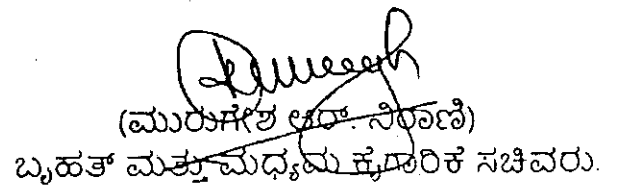 (ಮುರುಗೇಶ ಆರ್. ನಿರಾಣಿ)
ಬೃಹತ್ ಮತ್ತು ಮಧ್ಯಮ ಕೈಗಾರಿಕೆ ಸಚಿವರು.